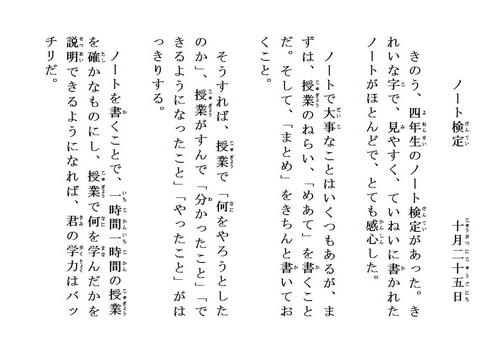 ノート検定　　　十月二十五日
　きのう、四年生のノート検定があった。き
れいな字で、見やすく、ていねいに書かれた
ノートがほとんどで、とても感心した。
　ノートで大事なことはいくつもあるが、ま
ずは、授業のねらい、「めあて」を書くこと
だ。そして、「まとめ」をきちんと書いてお
くこと。
　そうすれば、授業で「何をやろうとした
のか」、授業がすんで「分かったこと」「で
きるようになったこと」「やったこと」がは
っきりする。
　ノートを書くことで、一時間一時間の授業
を確かなものにし、授業で何を学んだかを
説明できるようになれば、君の学力はバッ
チリだ。